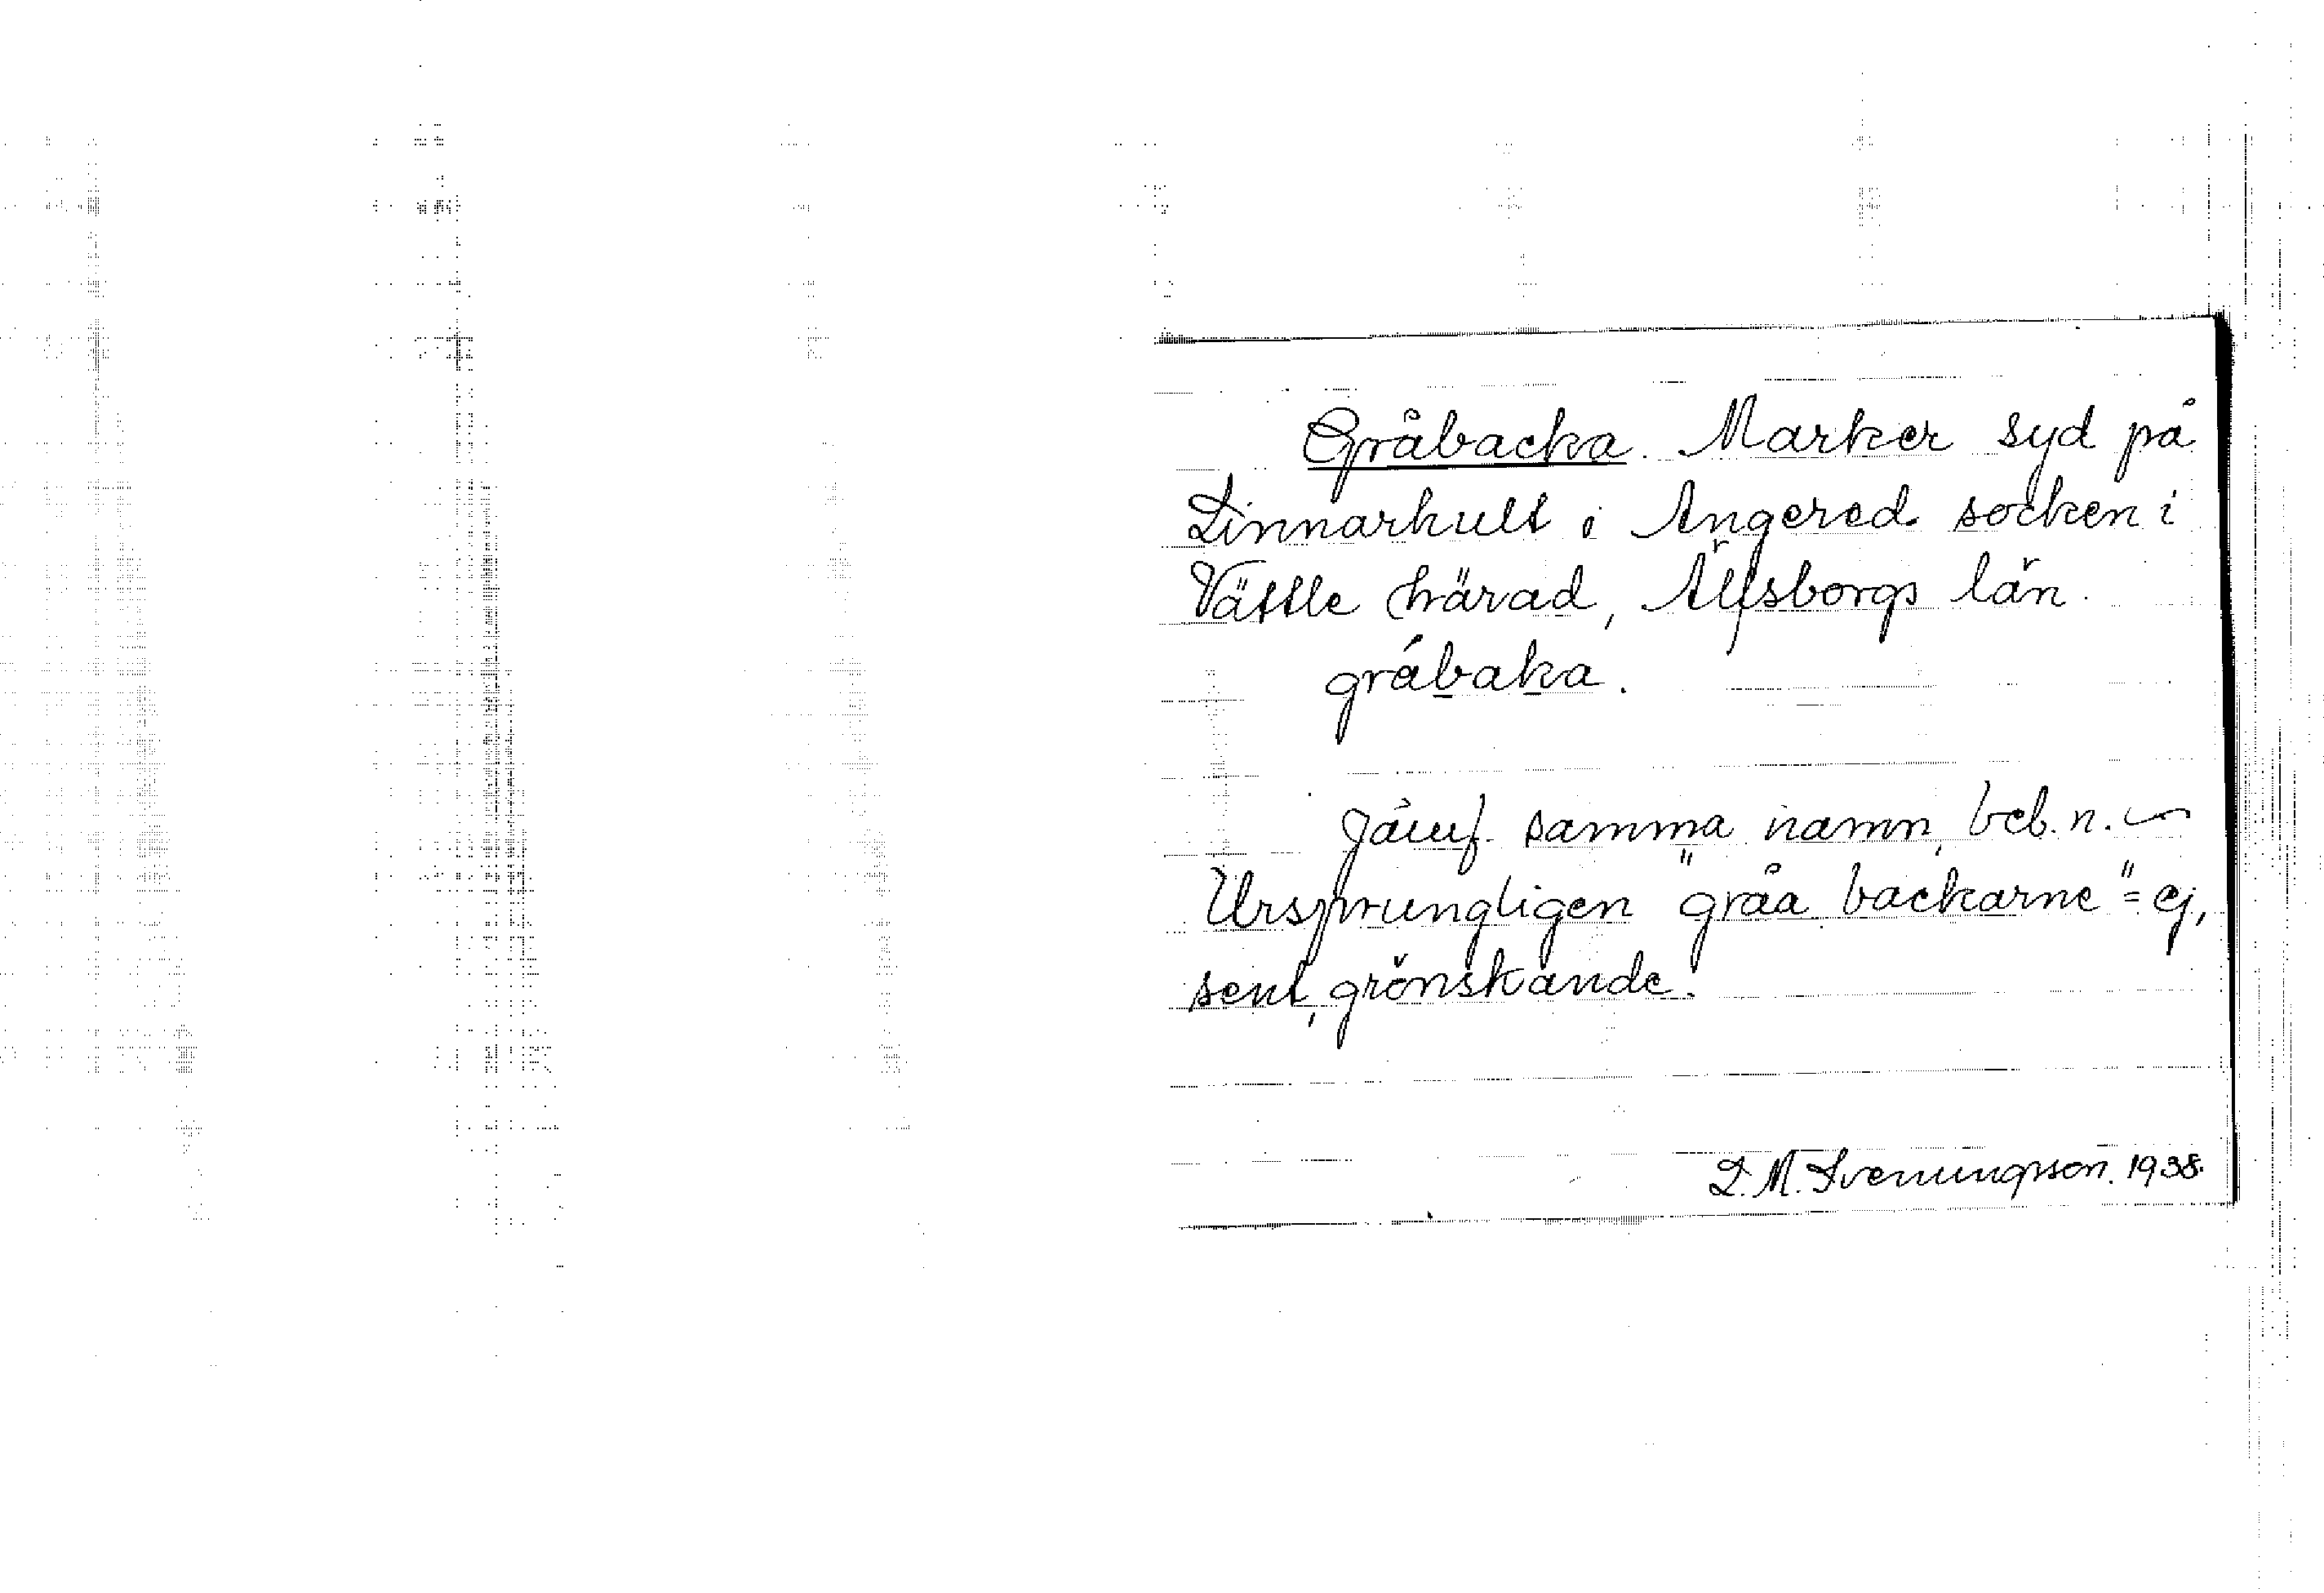 Gråbacka. Marker syd på
Linnarhult i Angered socken i
Vättle härad, Älfsborgs län.
gråbaka.
Jämf. samma namn, beb. n. ~
Ursprungligen "gråa backarne" = ej,
sent, grönskande.
L. M. Svenungsson. 1938.